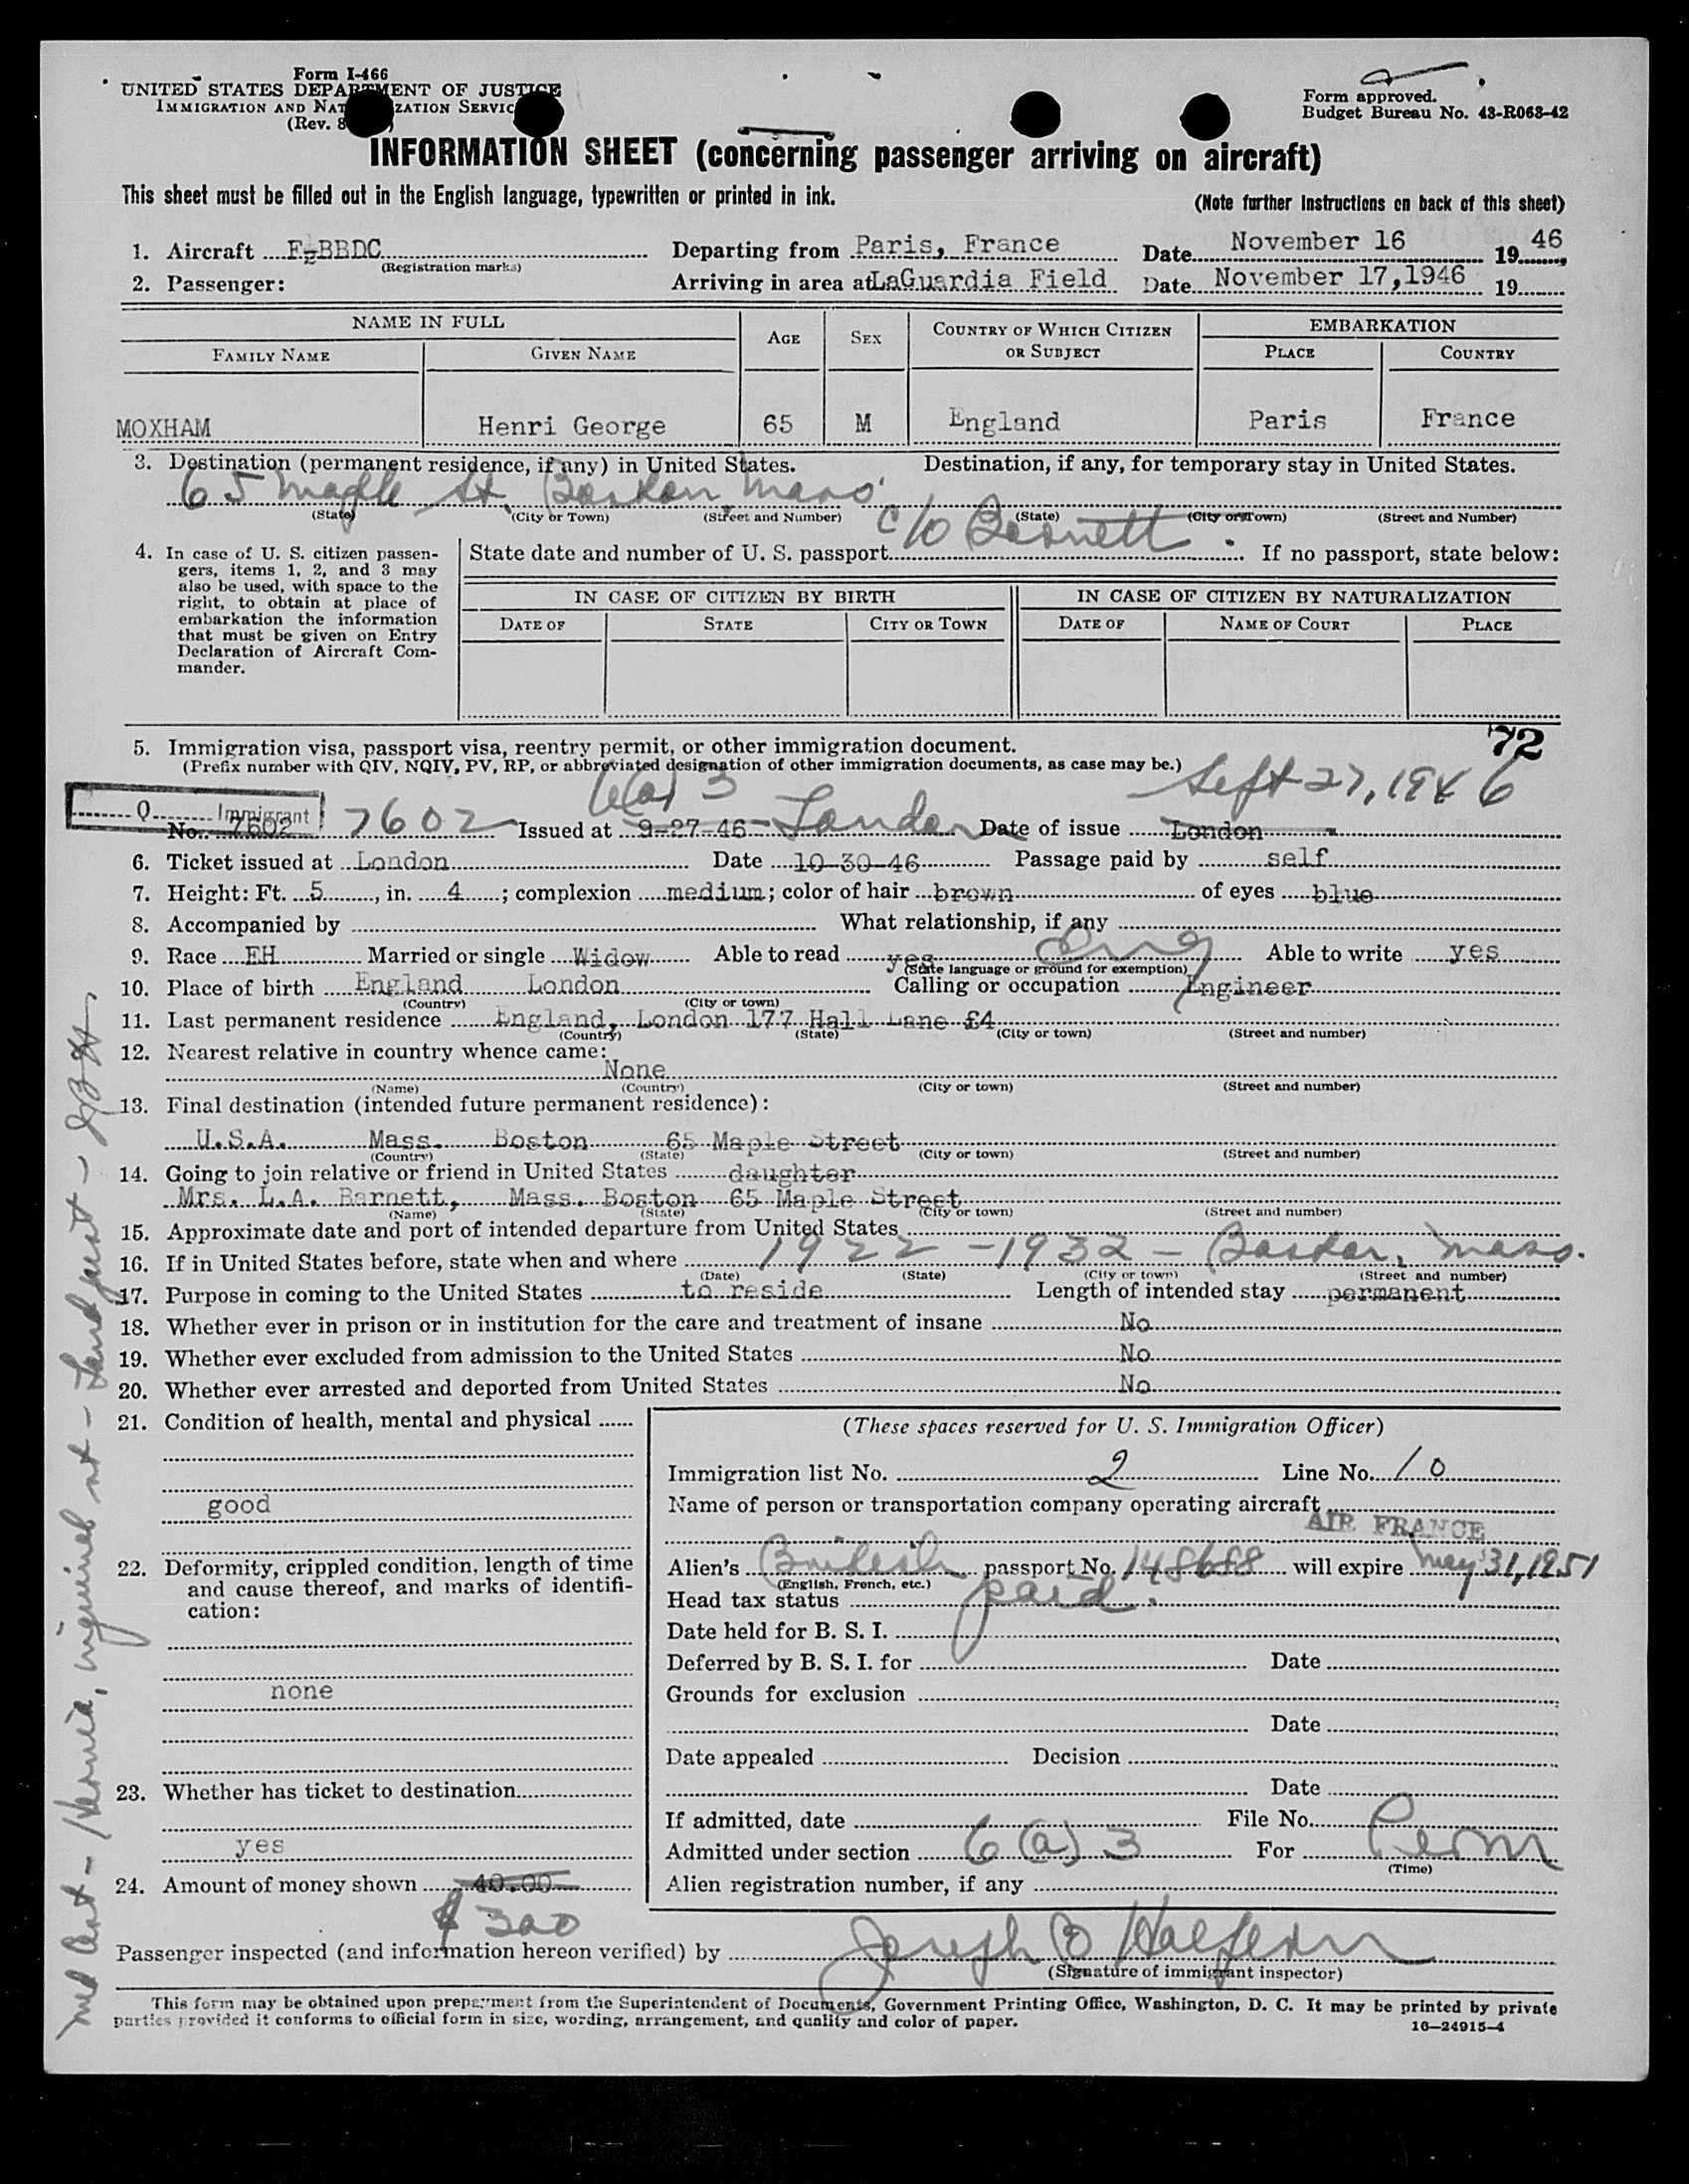 Form I-466
UNITED STATES DEPARTMENT OF JUSTICE
IMMIGRATION AND NAT ZATION SERVIC
(Rev. 8 )
Form approved.
Budget Bureau No. 43-R063-42
INFORMATION SHEET (concerning passenger arriving on aircraft)
This sheet must be filled out in the English language, typewritten or printed in ink.
(Note further instructions on back of this sheet)
1. Aircraft F-BBDC Departing from Paris, France Date November 16 19 46
(Registration marks)
2. Passenger: Arriving in area at LaGuardia Field Date November 17, 1946 19
NAME IN FULL AGE SEX COUNTRY OF WHICH CITIZEN OR SUBJECT EMBARKATION
FAMILY NAME GIVEN NAME PLACE COUNTRY
MOXHAM Henri George 65 M England Paris France
3. Destination (permanent residence, if any) in United States. Destination, if any, for temporary stay in United States.
65 Maple St. Boston, Mass
(State) (City or Town) (Street and Number) (State) (City or Town) (Street and Number)
c/o Bennett
4. In case of U. S. citizen passen-
gers, items 1, 2, and 3 may
also be used, with space to the
right, to obtain at place of
embarkation the information
that must be given on Entry
Declaration of Aircraft Com-
mander.
State date and number of U. S. passport If no passport, state below:
IN CASE OF CITIZEN BY BIRTH IN CASE OF CITIZEN BY NATURALIZATION
DATE OF STATE CITY OR TOWN DATE OF NAME OF COURT PLACE
72
5. Immigration visa, passport visa, reentry permit, or other immigration document.
(Prefix number with QIV, NQIV, PV, RP, or abbreviated designation of other immigration documents, as case may be.)
6(a) 3 Sept 27, 1946
Q Immigrant
No. 7602 7602 Issued at 9-27-46 London Date of issue London
6. Ticket issued at London Date 10-30-46 Passage paid by self
7. Height: Ft. 5, in. 4; complexion medium; color of hair brown of eyes blue
8. Accompanied by What relationship, if any
9. Race EH Married or single Widow Able to read yes Eng Able to write yes
(State language or ground for exemption)
10. Place of birth England London Calling or occupation Engineer
(Country) (City or town)
11. Last permanent residence England, London 177 Hall Lane £4
(Country) (State) (City or town) (Street and number)
12. Nearest relative in country whence came:
None
(Name) (Country) (City or town) (Street and number)
13. Final destination (intended future permanent residence):
U.S.A. Mass. Boston 65 Maple Street
(Country) (State) (City or town) (Street and number)
14. Going to join relative or friend in United States daughter
Mrs. L.A. Barnett, Mass. Boston 65 Maple Street
(Name) (State) (City or town) (Street and number)
15. Approximate date and port of intended departure from United States
16. If in United States before, state when and where 1922 - 1932 - Boston, Mass.
(Date) (State) (City or town) (Street and number)
17. Purpose in coming to the United States to reside Length of intended stay permanent
18. Whether ever in prison or in institution for the care and treatment of insane No
19. Whether ever excluded from admission to the United States No
20. Whether ever arrested and deported from United States No
21. Condition of health, mental and physical
good
22. Deformity, crippled condition, length of time
and cause thereof, and marks of identifi-
cation:
none
23. Whether has ticket to destination
yes
24. Amount of money shown 40.00
$ 300
(These spaces reserved for U. S. Immigration Officer)
Immigration list No. 2 Line No. 10
Name of person or transportation company operating aircraft
AIR FRANCE
Alien's British passport No. 148688 will expire May 31, 1951
(English, French, etc.)
Head tax status paid.
Date held for B. S. I.
Deferred by B. S. I. for Date
Grounds for exclusion
Date
Date appealed Decision
Date
If admitted, date File No.
Admitted under section 6(a) 3 For Perm
(Time)
Alien registration number, if any
Passenger inspected (and information hereon verified) by Joseph B Halpern
(Signature of immigrant inspector)
This form may be obtained upon prepayment from the Superintendent of Documents, Government Printing Office, Washington, D. C. It may be printed by private
parties provided it conforms to official form in size, wording, arrangement, and quality and color of paper.
16-24915-4
Med Cert - Hernia, inguinal rt -